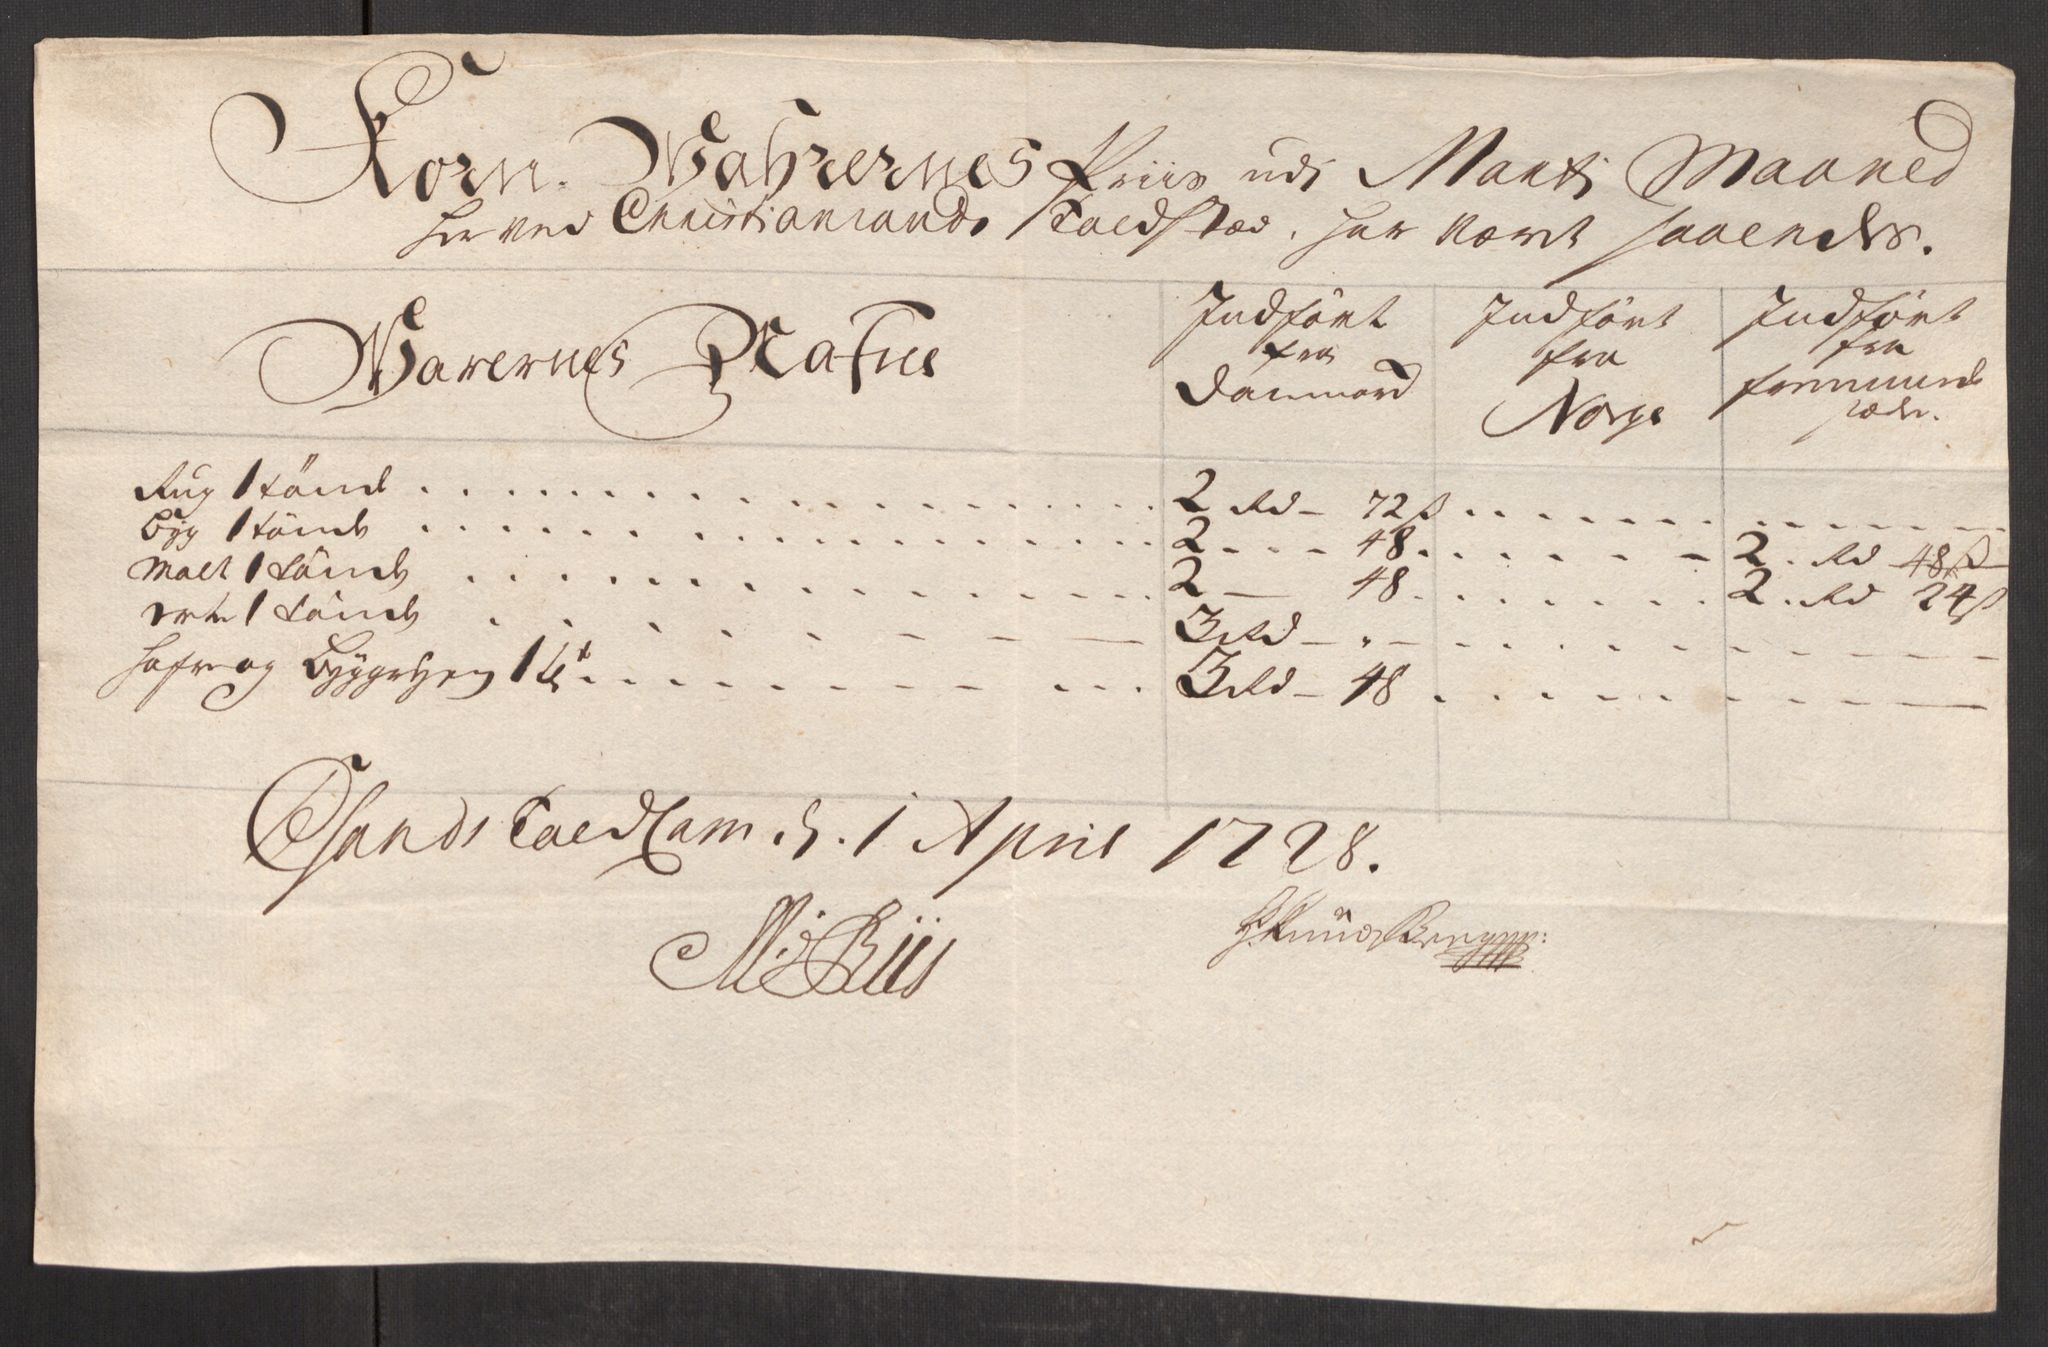 Korn Vahrernes Priis udi Marti Maaned
her ved Christiansands Toldsted, har været saaledes.
Varernes Nafne
Indført fra Danmarck
Indført fra Norge
Indført fra fremmede stæder.
Rug 1 tönde 2 Rd - 72 ß
Byg 1 tönde 2 - 48 2 Rd 48 ß
Malt 1 tönde 2 - 48 2 Rd 24 ß
erter 1 tönde 3 Rd -
hafre og Byggryn 1 3 Rd - 48
CSands Told Cam. d. 1 April 1728.
Riis